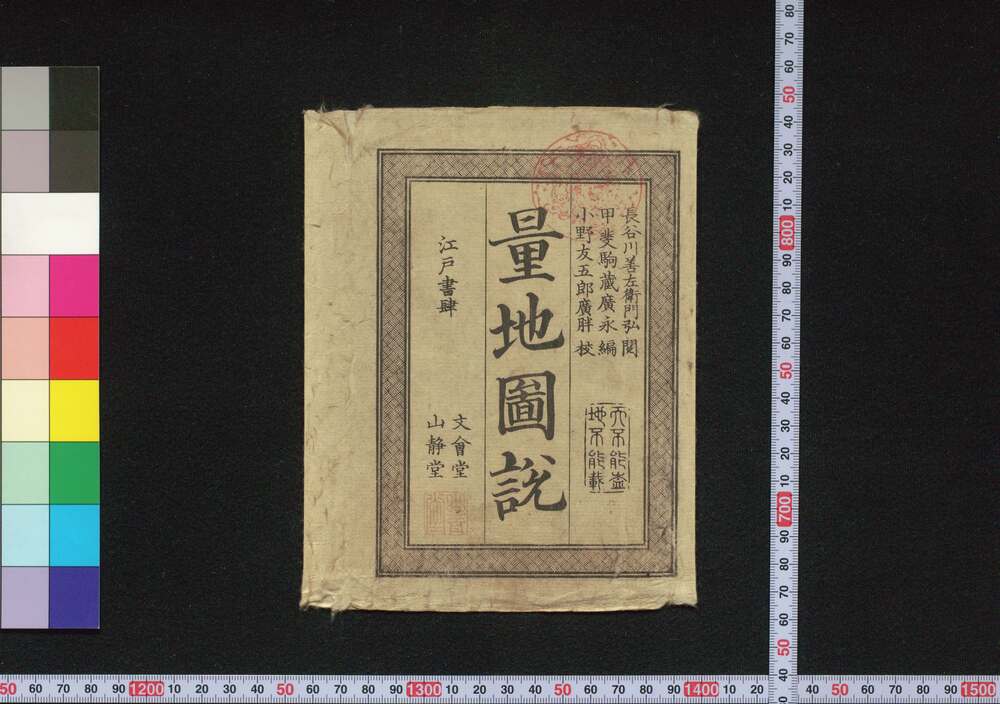 長谷川善左衛門弘閱
甲斐駒藏廣永編
小野友五郎廣胖校
天不能蓋
地不能載
量地圖說
江戶書肆
文會堂
山静堂
80
70
60
50
40
30
20
10
800
90
80
70
60
50
40
30
20
10
700
90
80
70
60
50
40
50 60 70 80 90 1200 10 20 30 40 50 60 70 80 90 1300 10 20 30 40 50 60 70 80 90 1400 10 20 30 40 50 60 70 80 90 1500